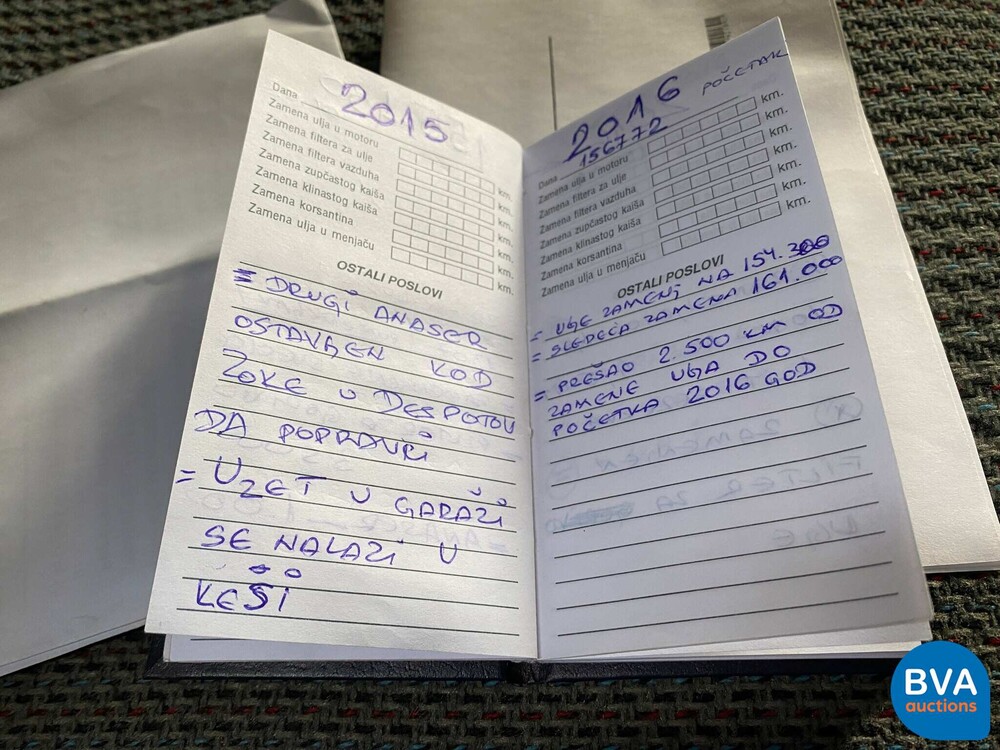 2015
Dana
Zamena ulja u motoru km.
Zamena filtera za ulje
Zamena filtera vazduha
Zamena zupčastog kaiša km.
Zamena klinastog kaiša km.
Zamena korsantina
Zamena ulja u menjaču km.
OSTALI POSLOVI
= DRUGI ANASER
OSTAVJEN KOD
ZOKE U DESPOTOV
DA POPRAVI
= UZET U GARAŽI
SE NALAZI U
KEŠI
2016 POČETAK
156772
Dana km.
Zamena ulja u motoru km.
Zamena filtera za ulje
Zamena filtera vazduha
Zamena zupčastog kaiša km.
Zamena klinastog kaiša
Zamena korsantina
Zamena ulja u menjaču km.
OSTALI POSLOVI
= UJE ZAMENJ NA 154.300
= SLEDEĆA ZAMENA 161.000
= PREŠAO 2.500 KM OD
ZAMENE UJA DO
POČETKA 2016 GOD
BVA
auctions